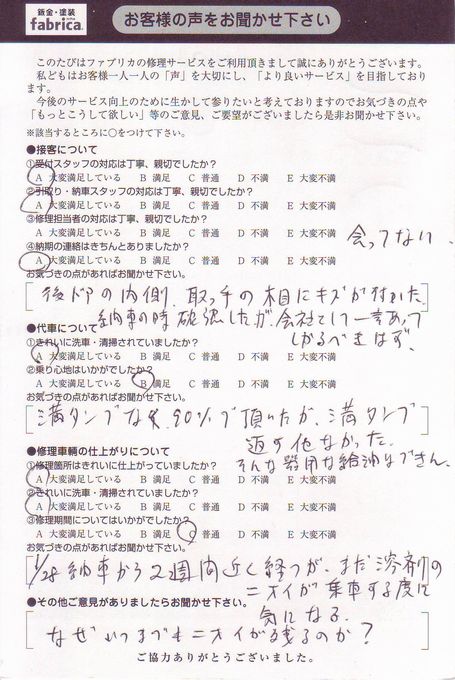 鈑金・塗装
fabrica
お客様の声をお聞かせ下さい
このたびはファブリカの修理サービスをご利用頂きまして誠にありがとうございます。
私どもはお客様一人一人の「声」を大切にし、「より良いサービス」を目指しており
ます。
今後のサービス向上のために生かして参りたいと考えておりますのでお気づきの点や
「もっとこうして欲しい」等のご意見、ご要望がございましたら是非お聞かせ下さい。
※該当するところに○をつけて下さい。
●接客について
①受付スタッフの対応は丁寧、親切でしたか?
A 大変満足している B 満足 C 普通 D 不満 E 大変不満
②引取り・納車スタッフの対応は丁寧、親切でしたか?
A 大変満足している B 満足 C 普通 D 不満 E 大変不満
③修理担当者の対応は丁寧、親切でしたか?
A 大変満足している B 満足 C 普通 D 不満 E 大変不満
会ってない、
④納期の連絡はきちんとありましたか?
A 大変満足している B 満足 C 普通 D 不満 E 大変不満
お気づきの点があればお聞かせ下さい。
後ドアの内側、取っ手の木目にキズが付いた。
納車の時確認したが、会社として一言あって
しかるべきはず、
●代車について
①きれいに洗車・清掃されていましたか?
A 大変満足している B 満足 C 普通 D 不満 E 大変不満
②乗り心地はいかがでしたか?
A 大変満足している B 満足 C 普通 D 不満 E 大変不満
お気づきの点があればお聞かせ下さい。
満タンでなく、90%で頂いたが、満タンで
返す他なかった。
そんな器用な給油はできん。
●修理車輌の仕上がりについて
①修理箇所はきれいに仕上がっていましたか?
A 大変満足している B 満足 C 普通 D 不満 E 大変不満
②きれいに洗車・清掃されていましたか?
A 大変満足している B 満足 C 普通 D 不満 E 大変不満
③修理期間についてはいかがでしたか?
A 大変満足している B 満足 C 普通 D 不満 E 大変不満
お気づきの点があればお聞かせ下さい。
1/28納車から2週間近く経つが、まだ溶剤の
ニオイが乗車する度に
気になる、
●その他ご意見がありましたらお聞かせ下さい。
なぜいつまでもニオイが残るのか?
ご協力ありがとうございました。